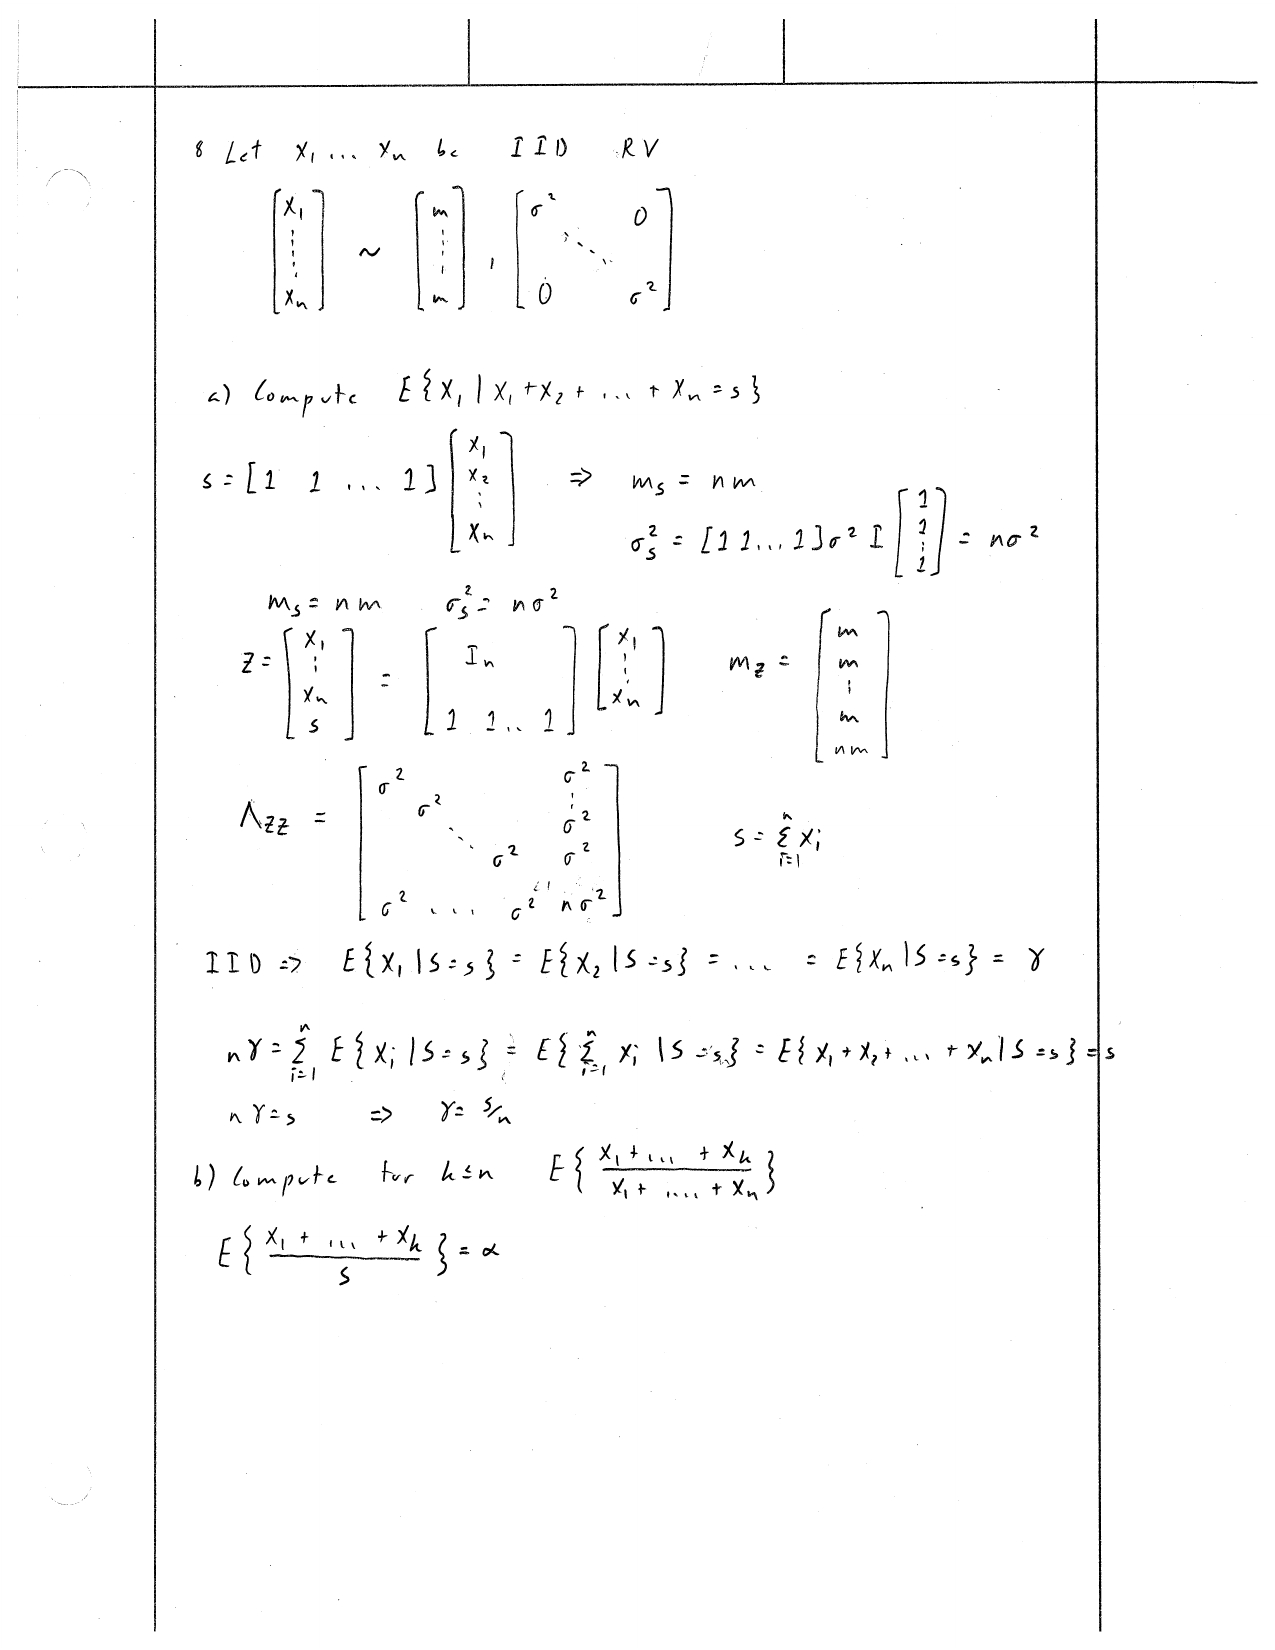 8 Let X₁ ... Xₙ be IID RV
[X₁ ⋮ Xₙ] ~ [m ⋮ m], [σ² 0 ⋱ 0 σ²]
a) Compute E{X₁ | X₁ + X₂ + ... + Xₙ = s}
s = [1 1 ... 1] [X₁ X₂ ⋮ Xₙ] ⇒ mₛ = nm
σₛ² = [1 1 ... 1] σ² I [1 1 ⋮ 1] = nσ²
mₛ = nm σₛ² = nσ²
Z = [X₁ ⋮ Xₙ s] = [Iₙ 1 1 .. 1] [X₁ ⋮ Xₙ] m_Z = [m m ⋮ m nm]
Λ_ZZ = [σ² σ² ⋱ σ² σ² ⋮ σ² σ² σ² ... σ² nσ²] s = Σᵢ₌₁ⁿ Xᵢ
IID ⇒ E{X₁ | S = s} = E{X₂ | S = s} = ... = E{Xₙ | S = s} = γ
nγ = Σᵢ₌₁ⁿ E{Xᵢ | S = s} = E{Σᵢ₌₁ⁿ Xᵢ | S = s} = E{X₁ + X₂ + ... + Xₙ | S = s} = s
nγ = s ⇒ γ = s/n
b) Compute for k ≤ n E{(X₁ + ... + Xₖ)/(X₁ + .... + Xₙ)}
E{(X₁ + ... + Xₖ)/S} = α